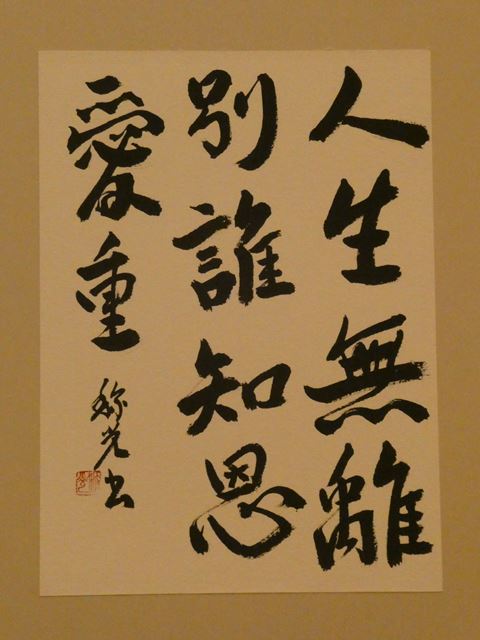 人生無離
別誰知恩
愛重
光書